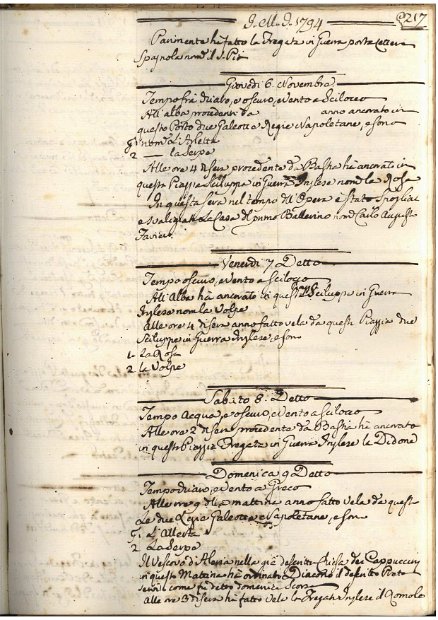 G. M. D. 1794 217
Parimente ha fatto la Fregata in Guerra porta Lettere
Spagnola nom. il S. Pio
Giovedi 6. Novembra
Tempo fra duiavo, e oscuro, e vento a Scilocco
All' alba procedenti da anno ancorato in
questo Porto due Galeotta Regie Napoletane, e sono
1 nom. L'Aletta
2 la Serpe
Alle ore 4 di sera procedente da Bastia ha ancorato in
questa Piazza Sciluppa in Guerra Inglese nom. la Rosa
In questa sera nel tenno dell' Opera è stato Spogliat
e svaligiata la Casa del primo Ballerino nom. Carlo Augusto
Favier
Venerdi 7 Detto
Tempo oscuro, e vento a Scilocco
All' Alba ha ancorato in questa Sciluppa in Guerra
Inglese nom. la Volpe
Alle ore 4 di sera anno fatto vela da questa Piazza due
Sciluppe in Guerra Inglese, e sono
1 La Rosa
2 la Volpe
Sabito 8. Detto
Tempo Acqua, e oscuro, e vento a Scilocco
Alle ore 2 di sera procedenta da Bastia ha ancorato
in questa Piazza Fregata in Guerra Inglese la Didone
Domenica 9 Detto
Tempo duiavo, e vento a Greco
Alle ore 9 di mattina anno fatto vela da quest
Le due Regie Galeotta Napoletane, e sono
1 L'Alletta
2 La Serpa
Il Vescovo di Aleria nella già descritta Chiesa dei Cappuccini
in questa Matina ha ordinato Diacono il descritto Prete
servili come fu detto domenica scorsa
alle ore 3 di sera ha fatto vela la Fregata Inglese il Romolo